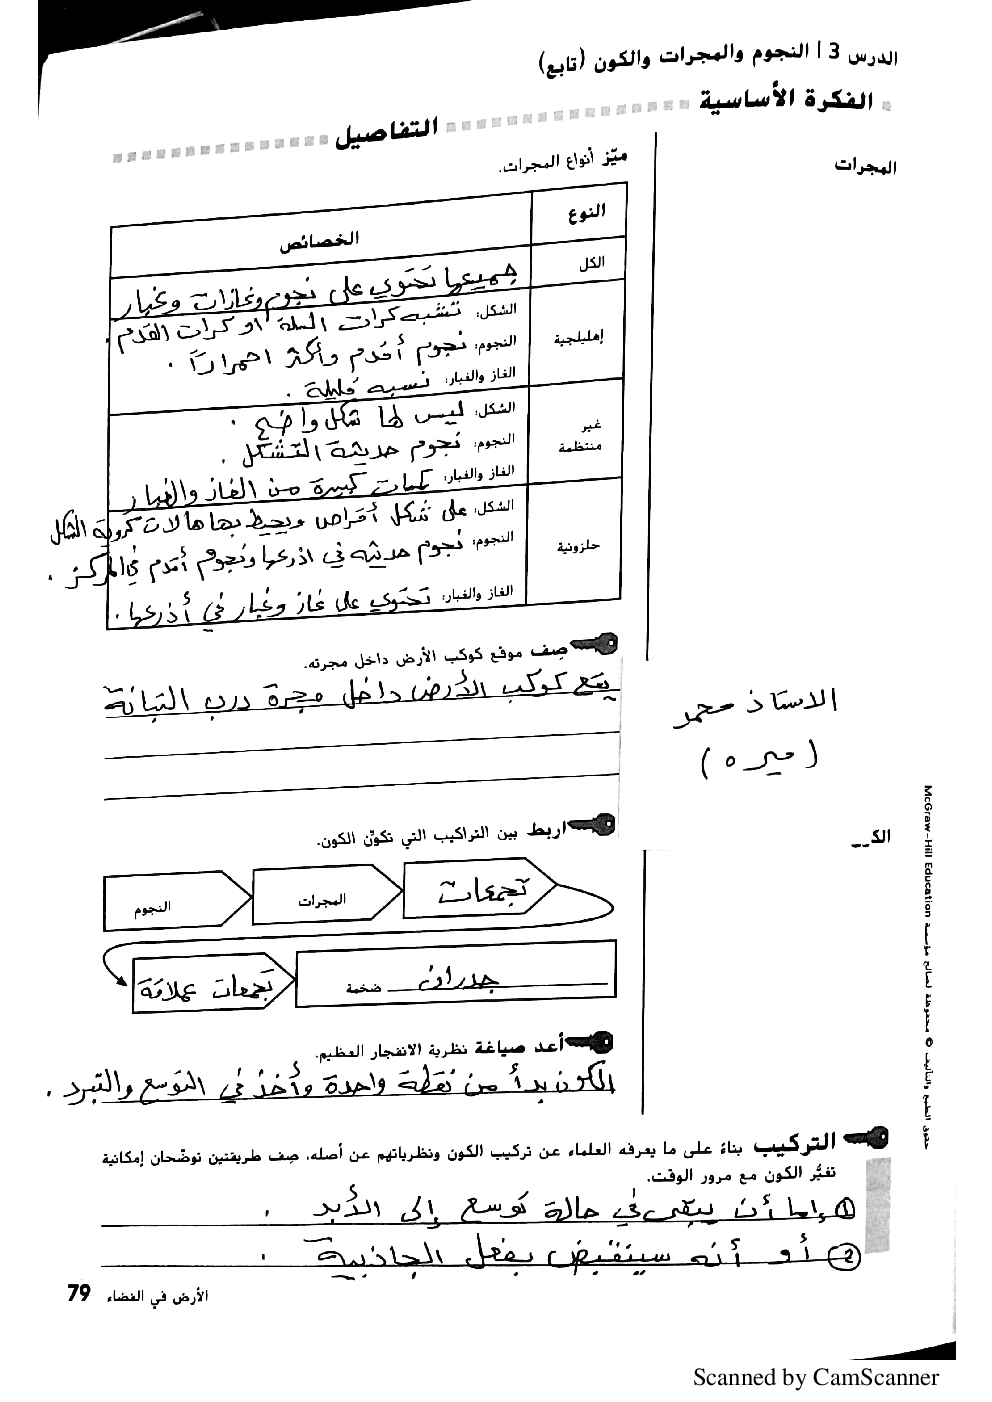 الدرس 3 | النجوم والمجرات والكون (تابع)
الفكرة الأساسية
التفاصيل
المجرات
ميّز أنواع المجرات.
النوع
الخصائص
الكل
جميعها تحتوي على نجوم وغازات وغبار
إهليلجية
الشكل: تشبه كرات السلة او كرات القدم.
النجوم: نجوم أقدم وأكثر احمرارًا.
الغاز والغبار: نسبه قليلة.
غير منتظمة
الشكل: ليس لها شكل واضح.
النجوم: نجوم حديثة التشكل.
الغاز والغبار: كميات كبيرة من الغاز والغبار
حلزونية
الشكل: على شكل أقراص ويحيط بها هالات كروية الشكل
النجوم: نجوم حديثه في اذرعها ونجوم أقدم في المركز.
الغاز والغبار: تحتوي على غاز وغبار في أذرعها.
صِف موقع كوكب الأرض داخل مجرته.
يقع كوكب الأرض داخل مجرة درب التبانة
الاستاذ محمد
(ميره)
الكـ
اربط بين التراكيب التي تكوّن الكون.
النجوم
المجرات
تجمعات
تجمعات عملاقة
جدران ضخمة
أعد صياغة نظرية الانفجار العظيم.
الكون بدأ من نقطة واحدة وأخذ في التوسع والتبرد.
التركيب بناءً على ما يعرفه العلماء عن تركيب الكون ونظرياتهم عن أصله، صِف طريقتين توضّحان إمكانية
تغيُّر الكون مع مرور الوقت.
1 إما أن يبقى في حالة توسع إلى الأبد.
2 أو أنه سينقبض بفعل الجاذبية.
حقوق الطبع والتأليف © محفوظة لصالح مؤسسة McGraw-Hill Education
الأرض في الفضاء 79
Scanned by CamScanner